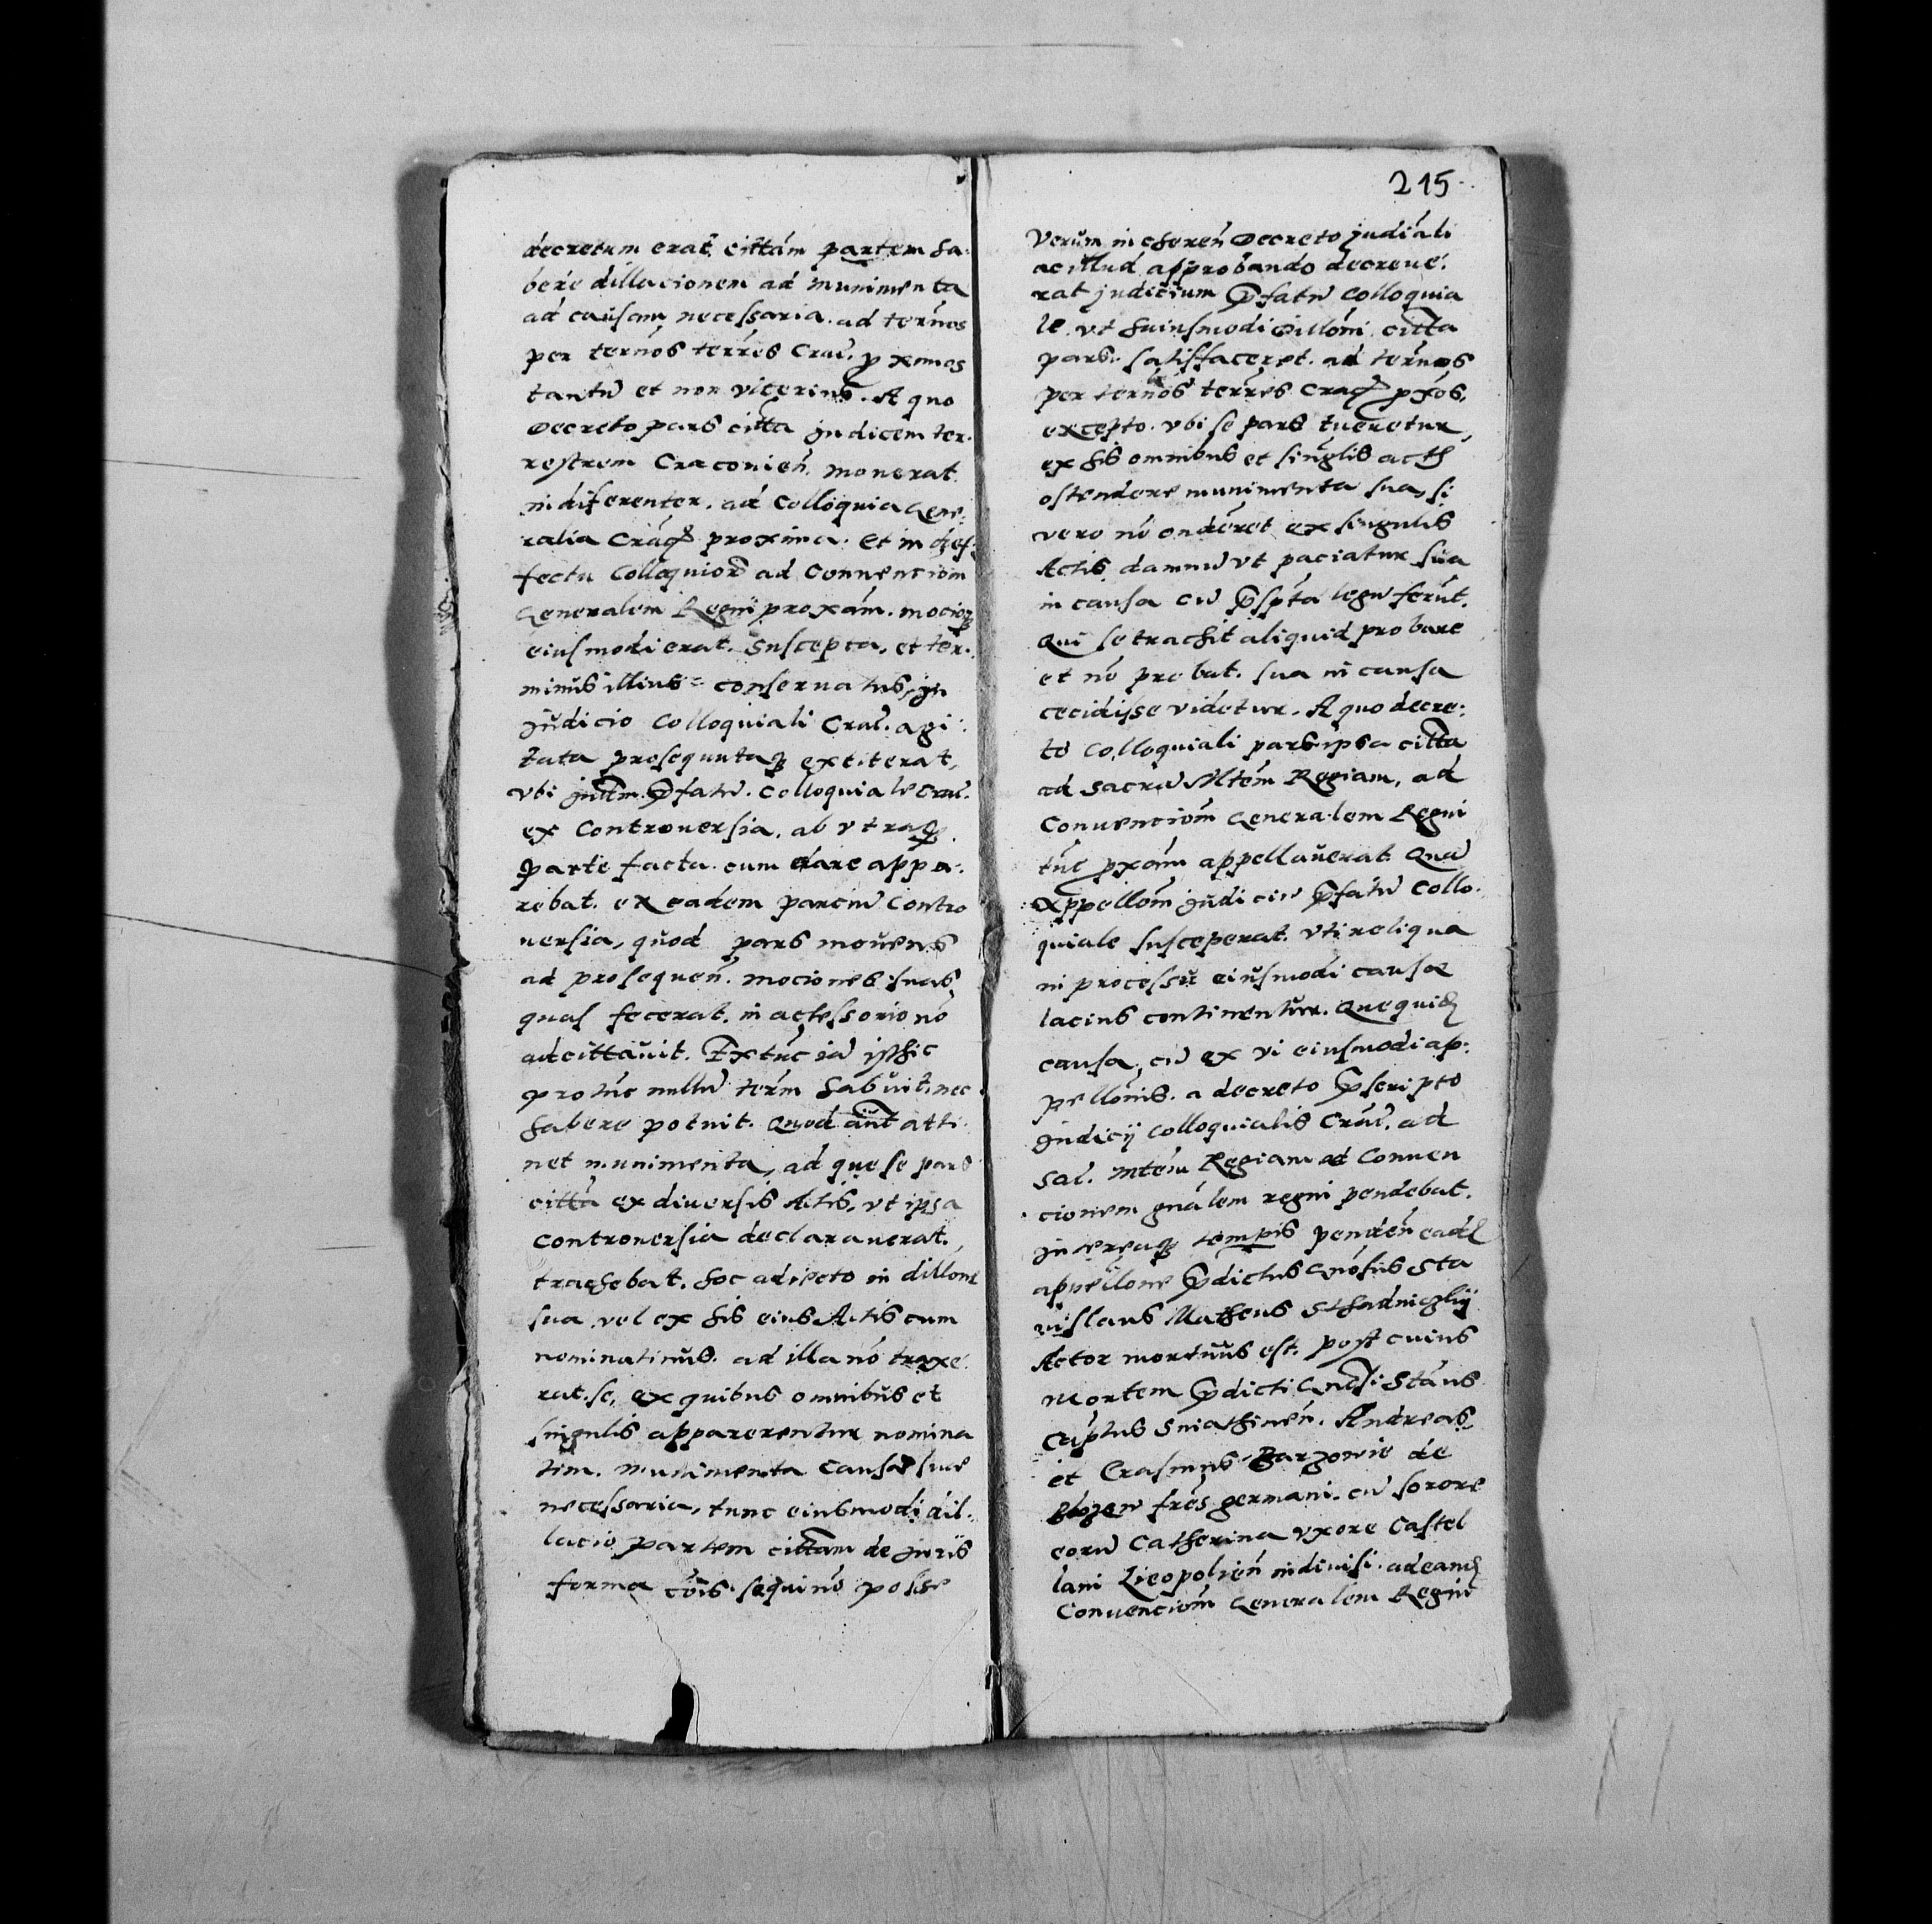 decretum erat. cittám partem ha-
bere dillacionem ad munimenta
ad causam necessaria. ad term̃os
per term̃os terrẽs Crac̃. ꝓxmos
tantũ et non vlterius. A quo
Decreto pars citta Judicem ter-
restrem Craconieñ. mouerat
indiferenter. ad Colloquia Gene-
ralia Crac̃ proxima. Et in def-
fectu Colloquior̃ ad Conuencioñm
Generalem Regni proxám. mocioq̃
eiusmodi erat. Suscepta, et ter-
minus illius conseruatus, in
Judicio Colloquiali Crac̃. agi-
tata prosequutaq̃ extiterat,
vbi Judm̃. p̃fatũ. Colloquiale Crac̃.
ex Controuersia, ab vtraq̃
Parte facta. cum clare appa-
rebat. ex eadem parciũ Contro
uersia, quod pars mouens
ad prosequeñ. mociones suas,
quas fecerat. in accessorio nõ
adcittauit. Extũc iã isthic
protũc nullũ term̃ habuit, nec
habere potuit. Quod aũt atti-
net munimenta, ad que se pars
citta ex diuersis Actis, vt ipsa
Controuersia declarauerat,
trahebat. hoc adiecto in dilloñe
sua vel ex his eius Actis cum
nominatimus. ad illa nõ traxe-
rat se, ex quibus omnibus et
singulis apparerentur nomina
tim. munimenta Causae suae
necessaria, tunc eiusmodi dil-
lacio partem cittam de Juris
forma cõis sequi nõ posse
215
Verum in hereñ Decreto judiãli
ac illud approbando decreue-
rat judicium p̃fatũ Colloquia
le vt huiusmodi Dillõni citta
pars. satisfaceret. ad term̃os
per term̃os terrẽs Crac̃ pxõs,
excepto. vbi se pars tueretur
ex his omnibus et singlis actis
ostendere munimenta sua, si
vero nõ onderet ex singulis
Actis. damnũ vt paciatur sua
in causa cũ p̃spta legũ ferũt.
Qui se trachit aliquid probare
et nõ probat. sua in causa
cecidisse videtur. A quo decre-
to Colloquiali pars ipsa citta
ad Sacrũ Mtem Regiam, ad
Conuencioñm Generalem Regni
tũc pxãm appellauerat. Quã
Appellõm Judiciũ p̃fatũ Collo-
quiale susceperat. vti reliqua
in processu eiusmodi causae
lacius continentur. Quequid
causa, cũ ex vi eiusmodi ap-
pellõnis. a decreto p̃scripto
Judicij Colloquialis Crac̃. ad
Sac̃. Mtem Regiam ad Conuen
cionem gnãlem regni pendebat.
Intereaq̃ tempis pendeñ eadẽ
appellone p̃dictus Gnõsus Sta
nislaus Matheus Sthadniczkij
Actor mortuus est. post cuius
Mortem p̃dicti Gnosi Stãus
Captus Sniathineñ. Andreas
et Erasmus Barzowie de
Blozew frẽs germani. cũ sorore
eorũ Catherina vxore Castel
lani Lieopolieñ indiuisi. ad eamd̃
Conuencioñm Generalem Regni